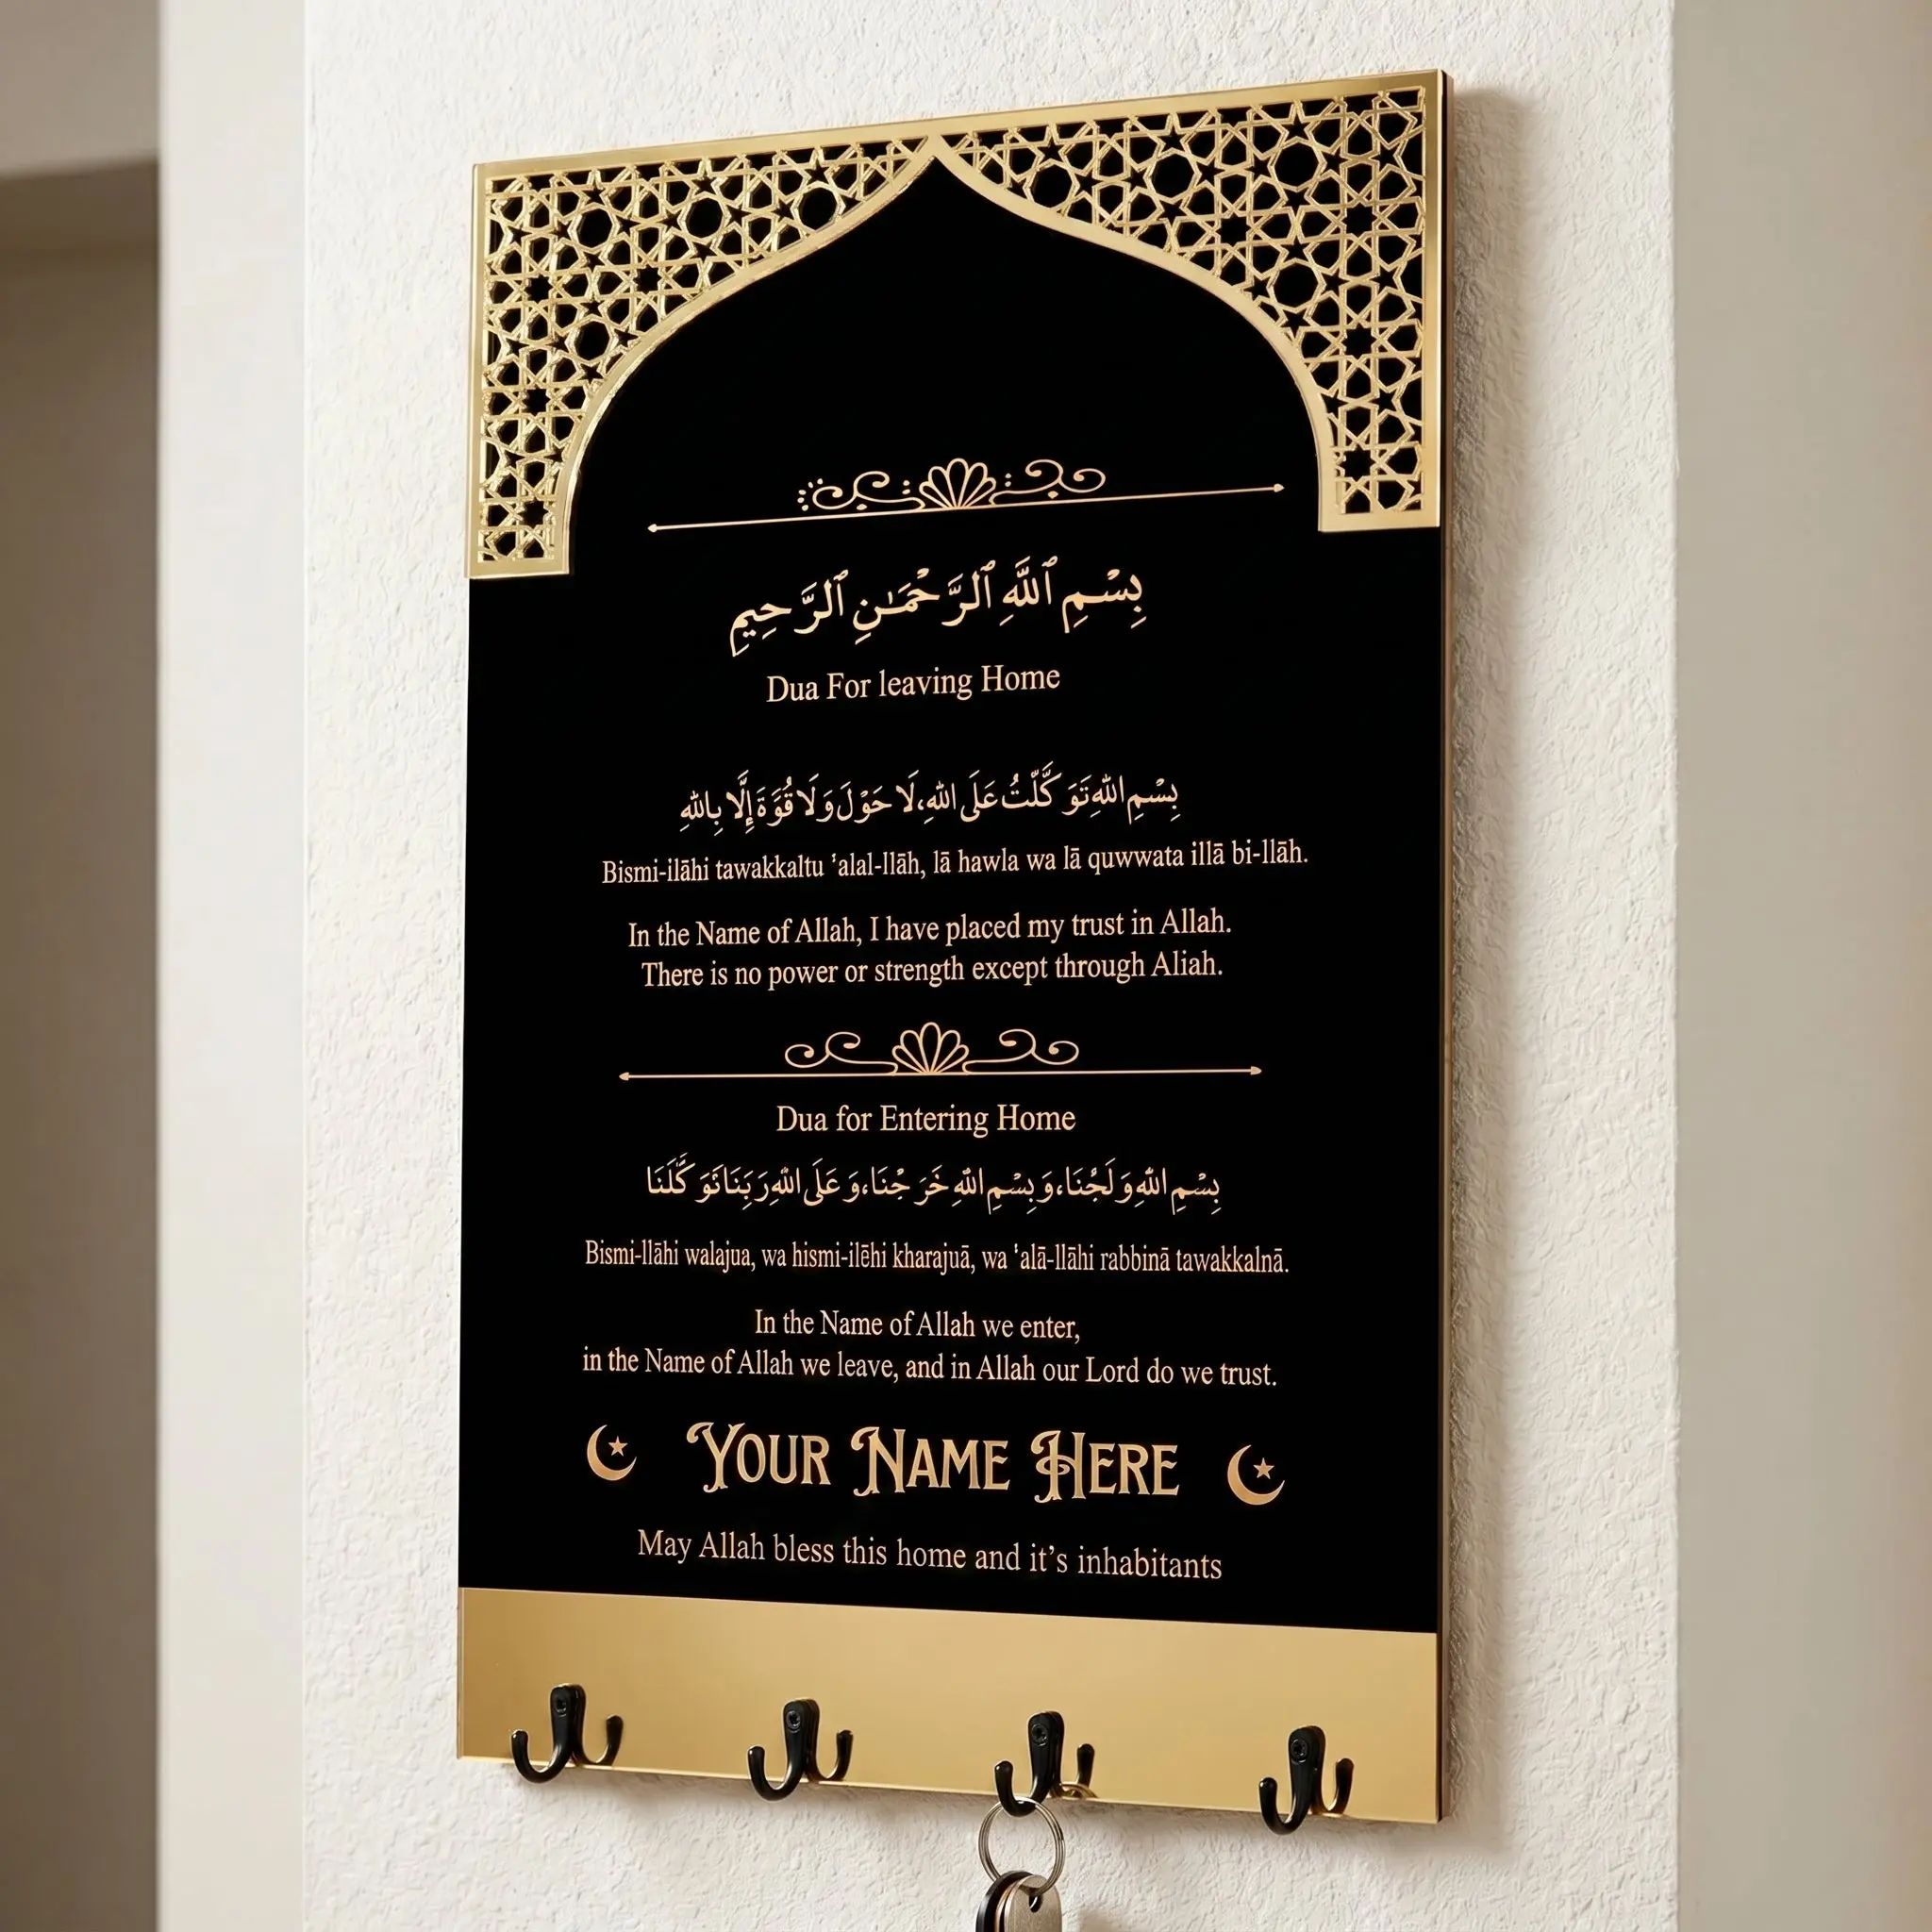 بِسْمِ ٱللَّهِ ٱلرَّحْمَـٰنِ ٱلرَّحِيمِ
Dua For leaving Home
بِسْمِ اللهِ تَوَكَّلْتُ عَلَى اللهِ، لَا حَوْلَ وَلَا قُوَّةَ إِلَّا بِاللهِ
Bismi-ilāhi tawakkaltu ʿalal-llāh, lā hawla wa lā quwwata illā bi-llāh.
In the Name of Allah, I have placed my trust in Allah.
There is no power or strength except through Aliah.
Dua for Entering Home
بِسْمِ اللهِ وَلَجْنَا، وَبِسْمِ اللهِ خَرَجْنَا، وَعَلَى اللهِ رَبِّنَا تَوَكَّلْنَا
Bismi-llāhi walajua, wa hismi-ilēhi kharajuā, wa ʿalā-llāhi rabbinā tawakkalnā.
In the Name of Allah we enter,
in the Name of Allah we leave, and in Allah our Lord do we trust.
Your Name Here
May Allah bless this home and it's inhabitants